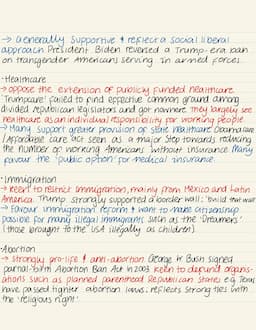 → Generally supportive & reflect a social liberal
approach President Biden reversed a Trump-era ban
on transgender Americans serving in armed forces.
·Healthcare
→ oppose the extension of publicly funded healthcare.
'Trumpcare' failed to find effective common ground among
divided republican legislators and got nowhere. They largely see
healthcare as an individual responsibility for working people
→ Many support greater provision of state healthcare Obamacare
/Affordable care act seen as a major step towards reducing
the number of working Americans without insurance. Many
favour the 'public option' for medical insurance.
·Immigration
→ Keen to restrict immigration, mainly from Mexico and Latin
America. Trump strongly supported a border wall: 'build that wall'
→ Favour immigration reform & want to make citizenship
possible for many illegal immigrants such as the 'Dreamers'
(those brought to the USA illegally as children).
·Abortion
→ strongly pro-life & anti-abortion George W Bush signed
partial-birth Abortion Ban Act in 2003. Keen to defund organis-
ations such as planned parenthood Republican states e.g Texas
have passed tighter abortion laws; reflects strong ties with
the 'religious right'